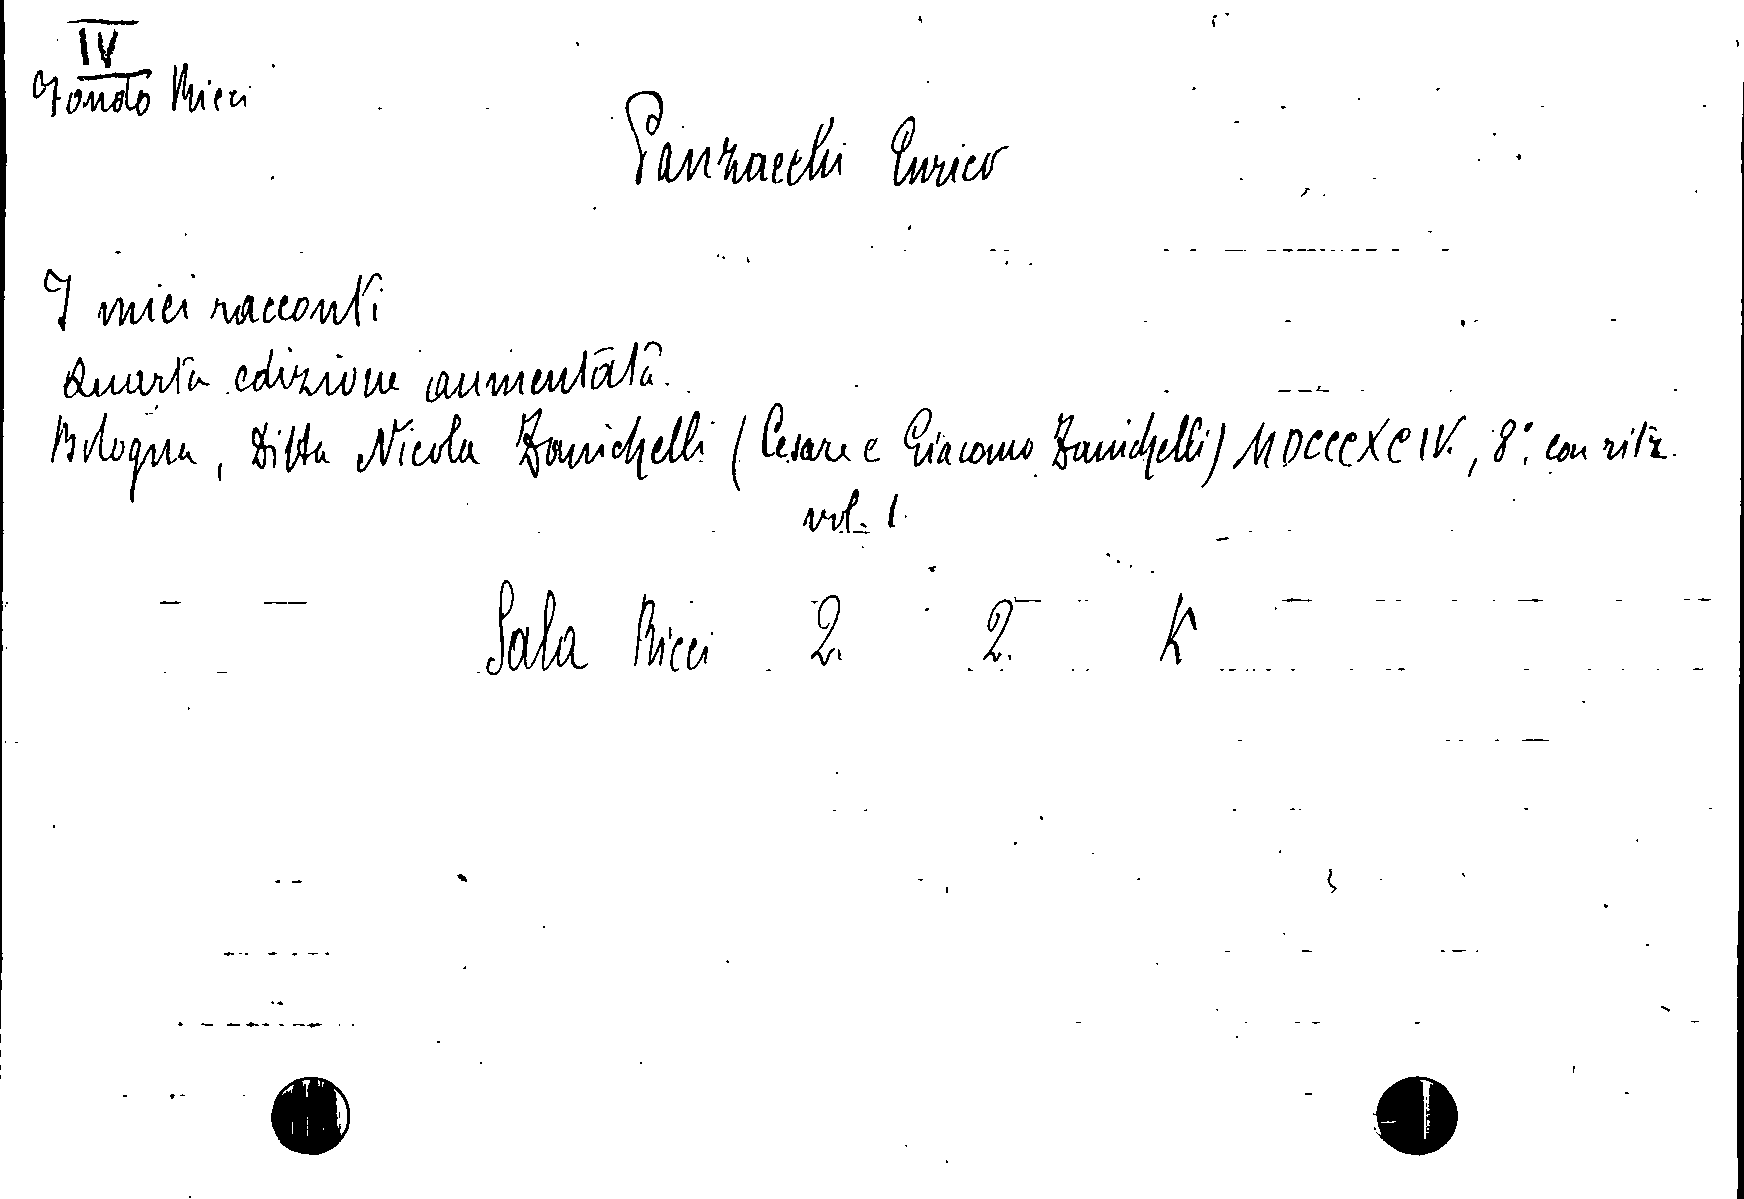 IV
Fondo Ricci
Panzacchi Enrico
I miei racconti
Quarta edizione aumentata.
Bologna, Ditta Nicola Zanichelli (Cesare e Giacomo Zanichelli) MDCCCXCIV, 8° con ritr.
vol. 1.
Sala Ricci 2. 2. K